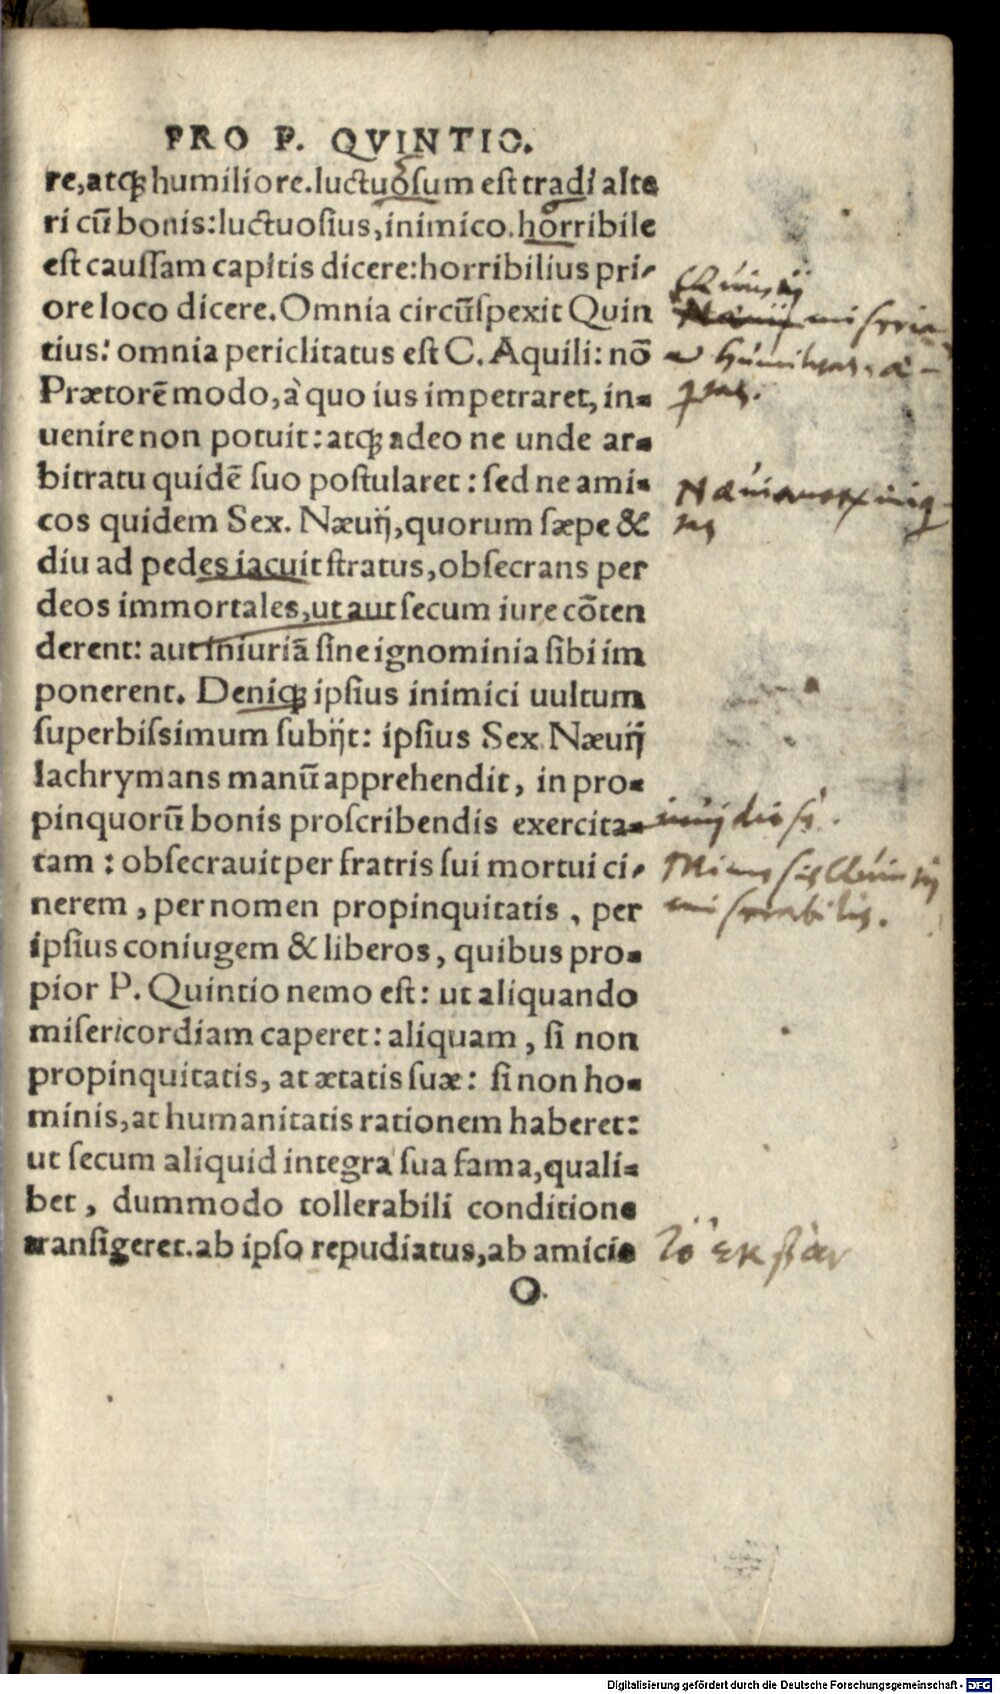 PRO P. QVINTIO.
re,atq̃ humiliore.luctuosum est tradi alte
ri cũ bonis:luctuosius,inimico.horribile
est caussam capitis dicere:horribilius pri-
ore loco dicere.Omnia circũspexit Quin
tius: omnia periclitatus est C. Aquili: nõ
Prætorẽ modo, à quo ius impetraret, in-
uenire non potuit: atq̃ adeo ne unde ar-
bitratu quidẽ suo postularet: sed ne ami-
cos quidem Sex. Næuij, quorum sæpe &
diu ad pedes iacuit stratus, obsecrans per
deos immortales, ut aut secum iure cõten
derent: aut iniuriã sine ignominia sibi im
ponerent. Deniq̃ ipsius inimici uultum
superbissimum subijt: ipsius Sex. Næuij
lachrymans manũ apprehendit, in pro-
pinquorũ bonis proscribendis exercita-
tam: obsecrauit per fratris sui mortui ci-
nerem, per nomen propinquitatis, per
ipsius coniugem & liberos, quibus pro-
pior P. Quintio nemo est: ut aliquando
misericordiam caperet: aliquam, si non
propinquitatis, at ætatis suæ: si non ho-
minis, at humanitatis rationem haberet:
ut secum aliquid integra sua fama, quali-
bet, dummodo tollerabili conditione
transigeret. ab ipso repudiatus, ab amicis
O
Quintij
miseria
humilitas
Mimesis Quintij
miserabilis.